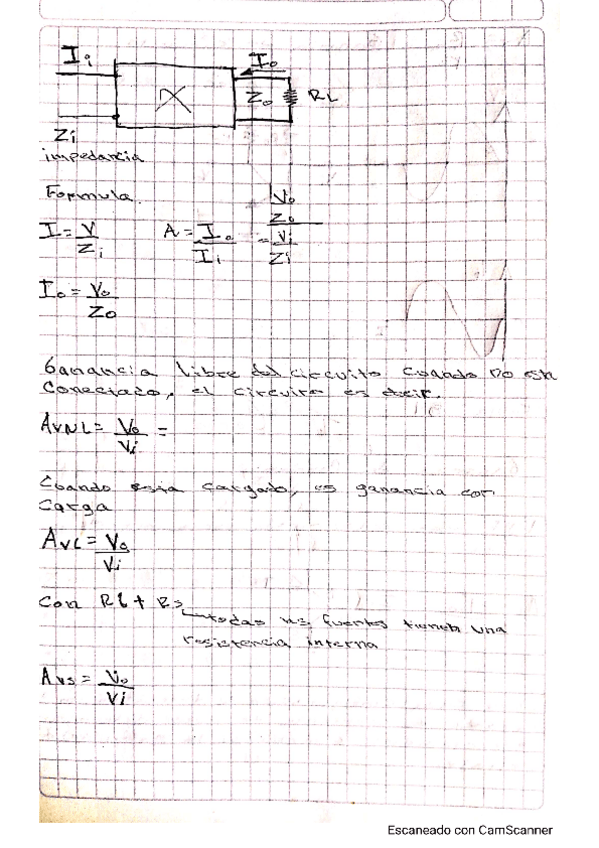 Ii
Io
Zo
RL
Zi
impedancia
Formula.
I = V / Zi
A = Io / Ii = Vo / Zo / Vi / Zi
Io = Vo / Zo
Ganancia libre del circuito cuando no esta
conectado, el circuito es decir.
AVNL = Vo / Vi =
Cuando esta cargado, es ganancia con
carga
AVL = Vo / Vi
Con RL + Rs
todas las fuentes tienen una
resistencia interna
AVS = Vo / Vi
Escaneado con CamScanner